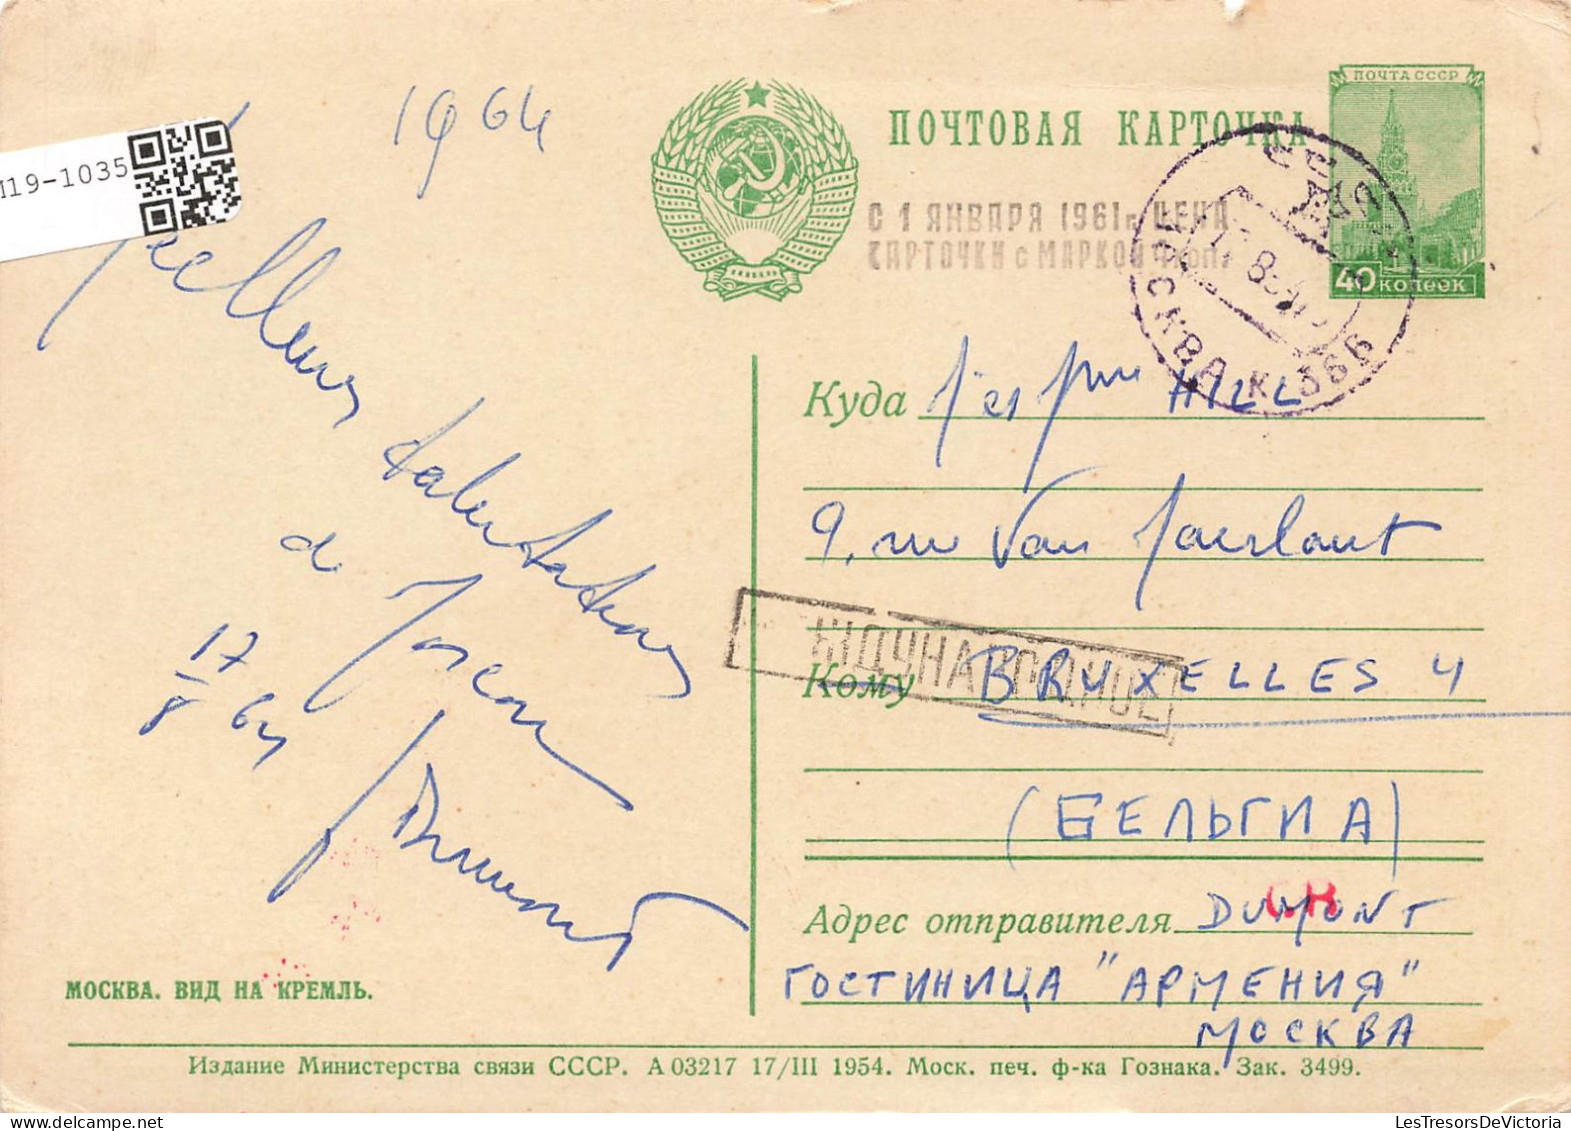 M19-1035
1964
ПОЧТОВАЯ КАРТОЧКА
ПОЧТА СССР
40 копеек
С 1 ЯНВАРЯ 1961 г. ЦЕНА
КАРТОЧКИ с МАРКОЙ 4 коп.
МОСКВА К-336
salutations
de Moscou
17/8 64
Dumont
Куда HILL
9, rue Van Maerlant
МЕЖДУНАРОДНОЕ
Кому BRUXELLES 4
(БЕЛЬГИА)
Адрес отправителя DUMONT
ГОСТИНИЦА "АРМЕНИЯ"
МОСКВА
МОСКВА. ВИД НА КРЕМЛЬ.
Издание Министерства связи СССР. А 03217 17/III 1954. Моск. печ. ф-ка Гознака. Зак. 3499.
LesTresorsDeVictoria